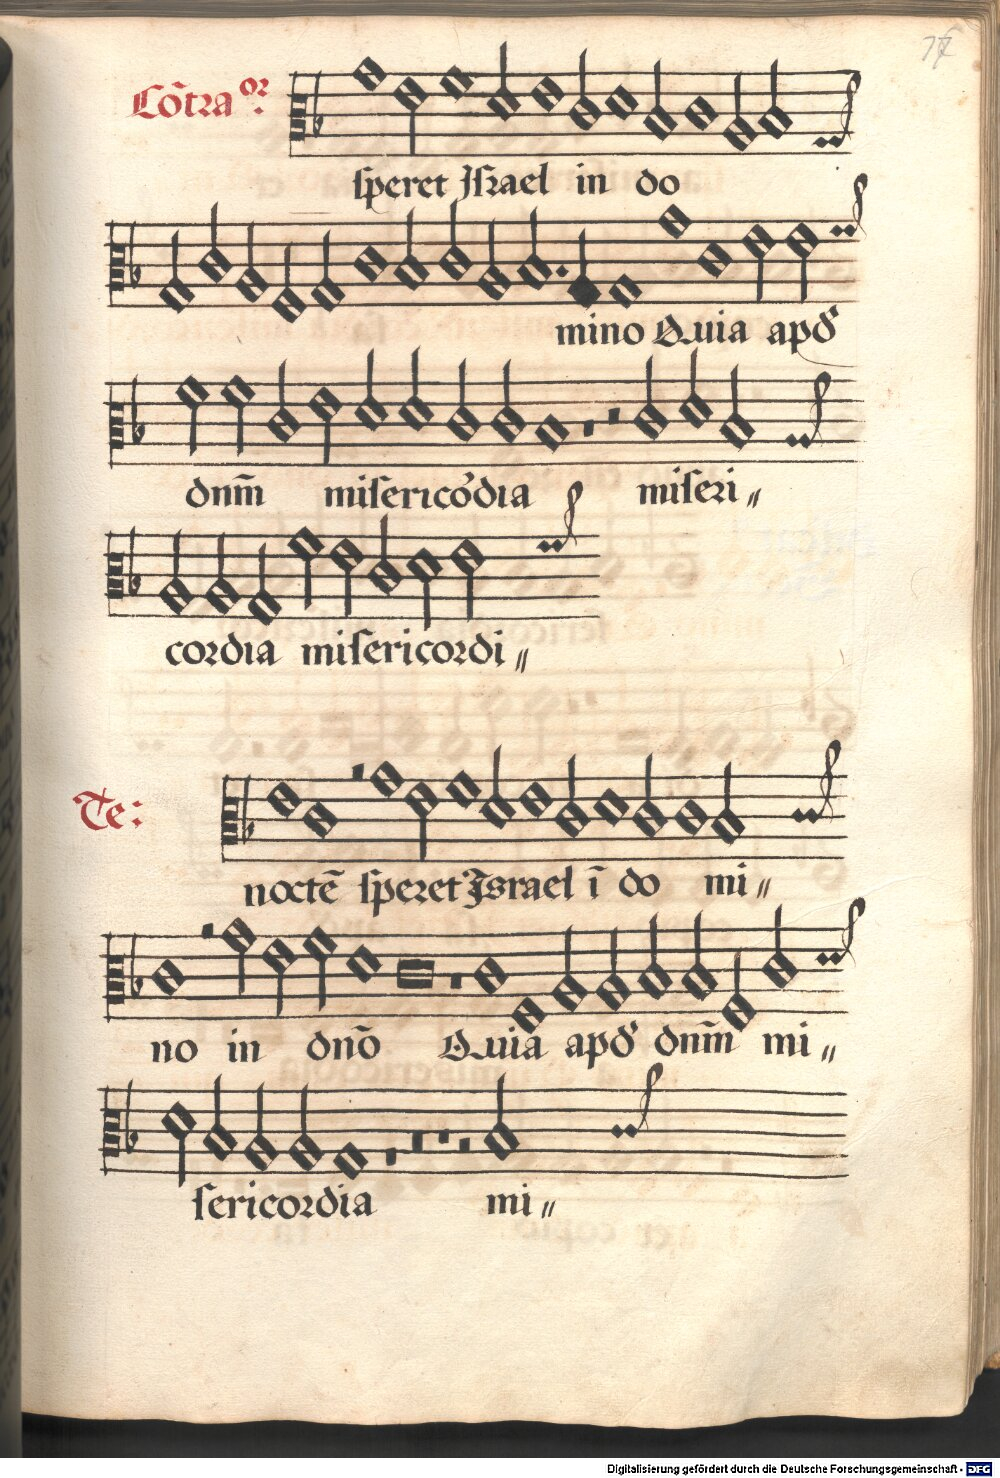 Cõtra or.
speret Israel in do
mino Quia apd'
dnm̃ misericódia miseri〃
cordia misericordi〃
Te:
noctē speret Israel ī do mi〃
no in dnõ Quia apd' dnm̃ mi〃
sericordia mi〃
Digitalisierung gefördert durch die Deutsche Forschungsgemeinschaft - DFG